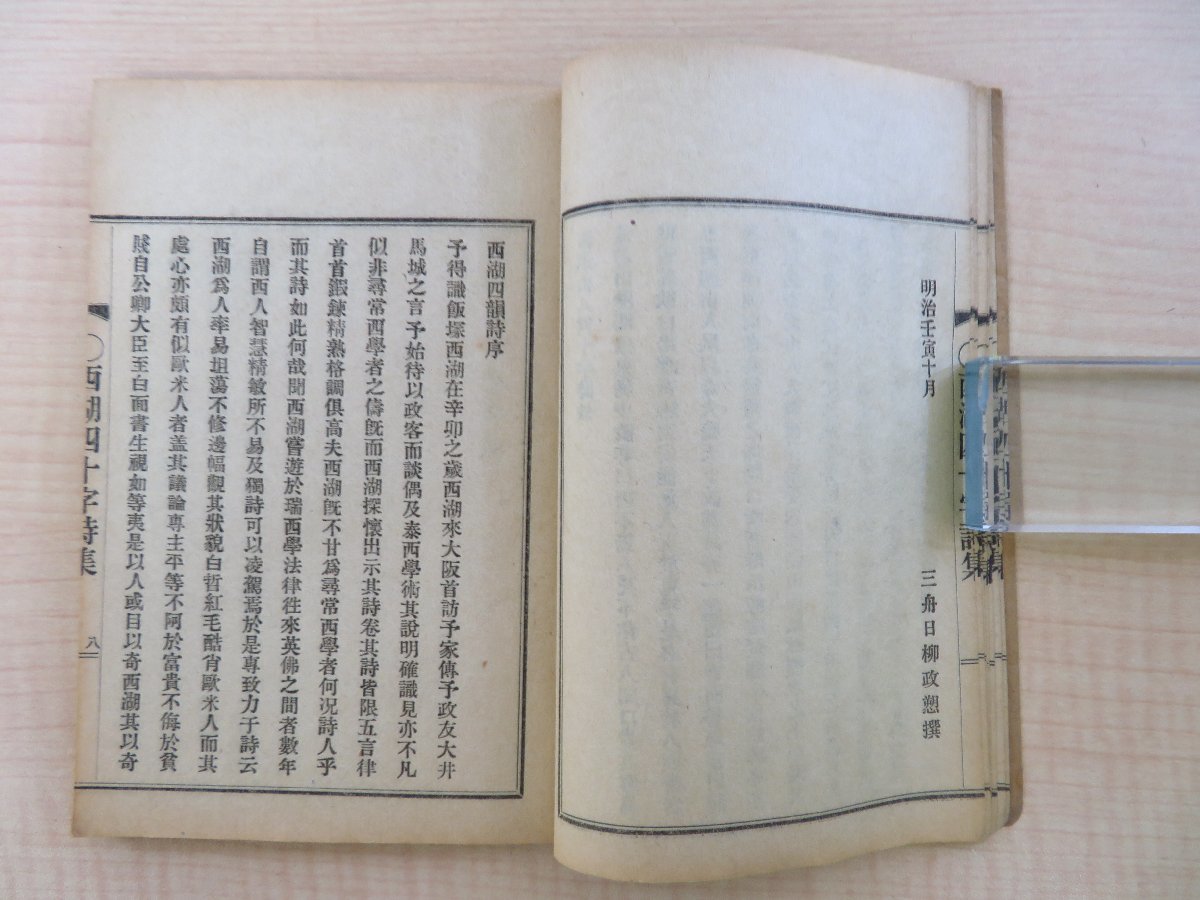 明治壬寅十月
三舟日柳政愬撰
西湖四韻詩序
予得識飯塚西湖在辛卯之歲西湖來大阪首訪予家傳予政友大井
馬城之言予始待以政客而談偶及泰西學術其說明確識見亦不凡
似非尋常西學者之儔旣而西湖探懷出示其詩卷其詩皆限五言律
首首鍛鍊精熟格調俱高夫西湖旣不甘爲尋常西學者何况詩人乎
而其詩如此何哉聞西湖嘗遊於瑞西學法律徃來英佛之間者數年
自謂西人智慧精敏所不易及獨詩可以凌駕焉於是專致力于詩云
西湖爲人率易坦蕩不修邊幅觀其狀貌白晳紅毛酷肖歐米人而其
處心亦頗有似歐米人者盖其議論專主平等不阿於富貴不侮於貧
賤自公卿大臣至白面書生視如等夷是以人或目以奇西湖其以奇
○西湖四十字詩集
八